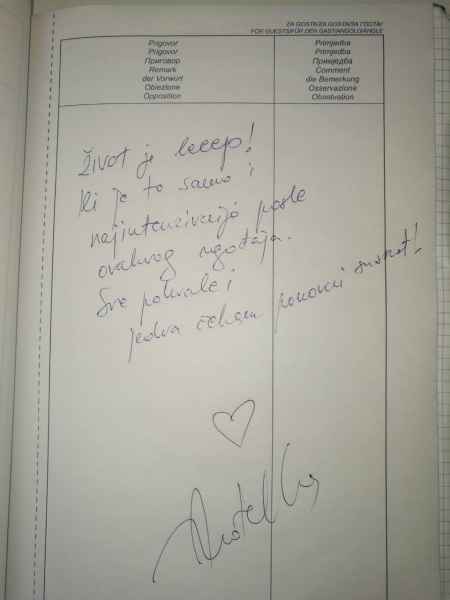 ZA GOSTA/ZA GOSTA/ZA ГОСТА/
FOR GUESTS/FÜR DEN GAST/
Prigovor
Prigovor
Приговор
Remark
der Vorwurf
Obiezione
Opposition
Primjedba
Primjedba
Примједба
Comment
die Bemerkung
Osservazione
Observation
Život je lep!
to samo i
najintenzivnije posle
ovakvog ugođaja.
Sve pohvale i
jedva čekam ponovni susret!